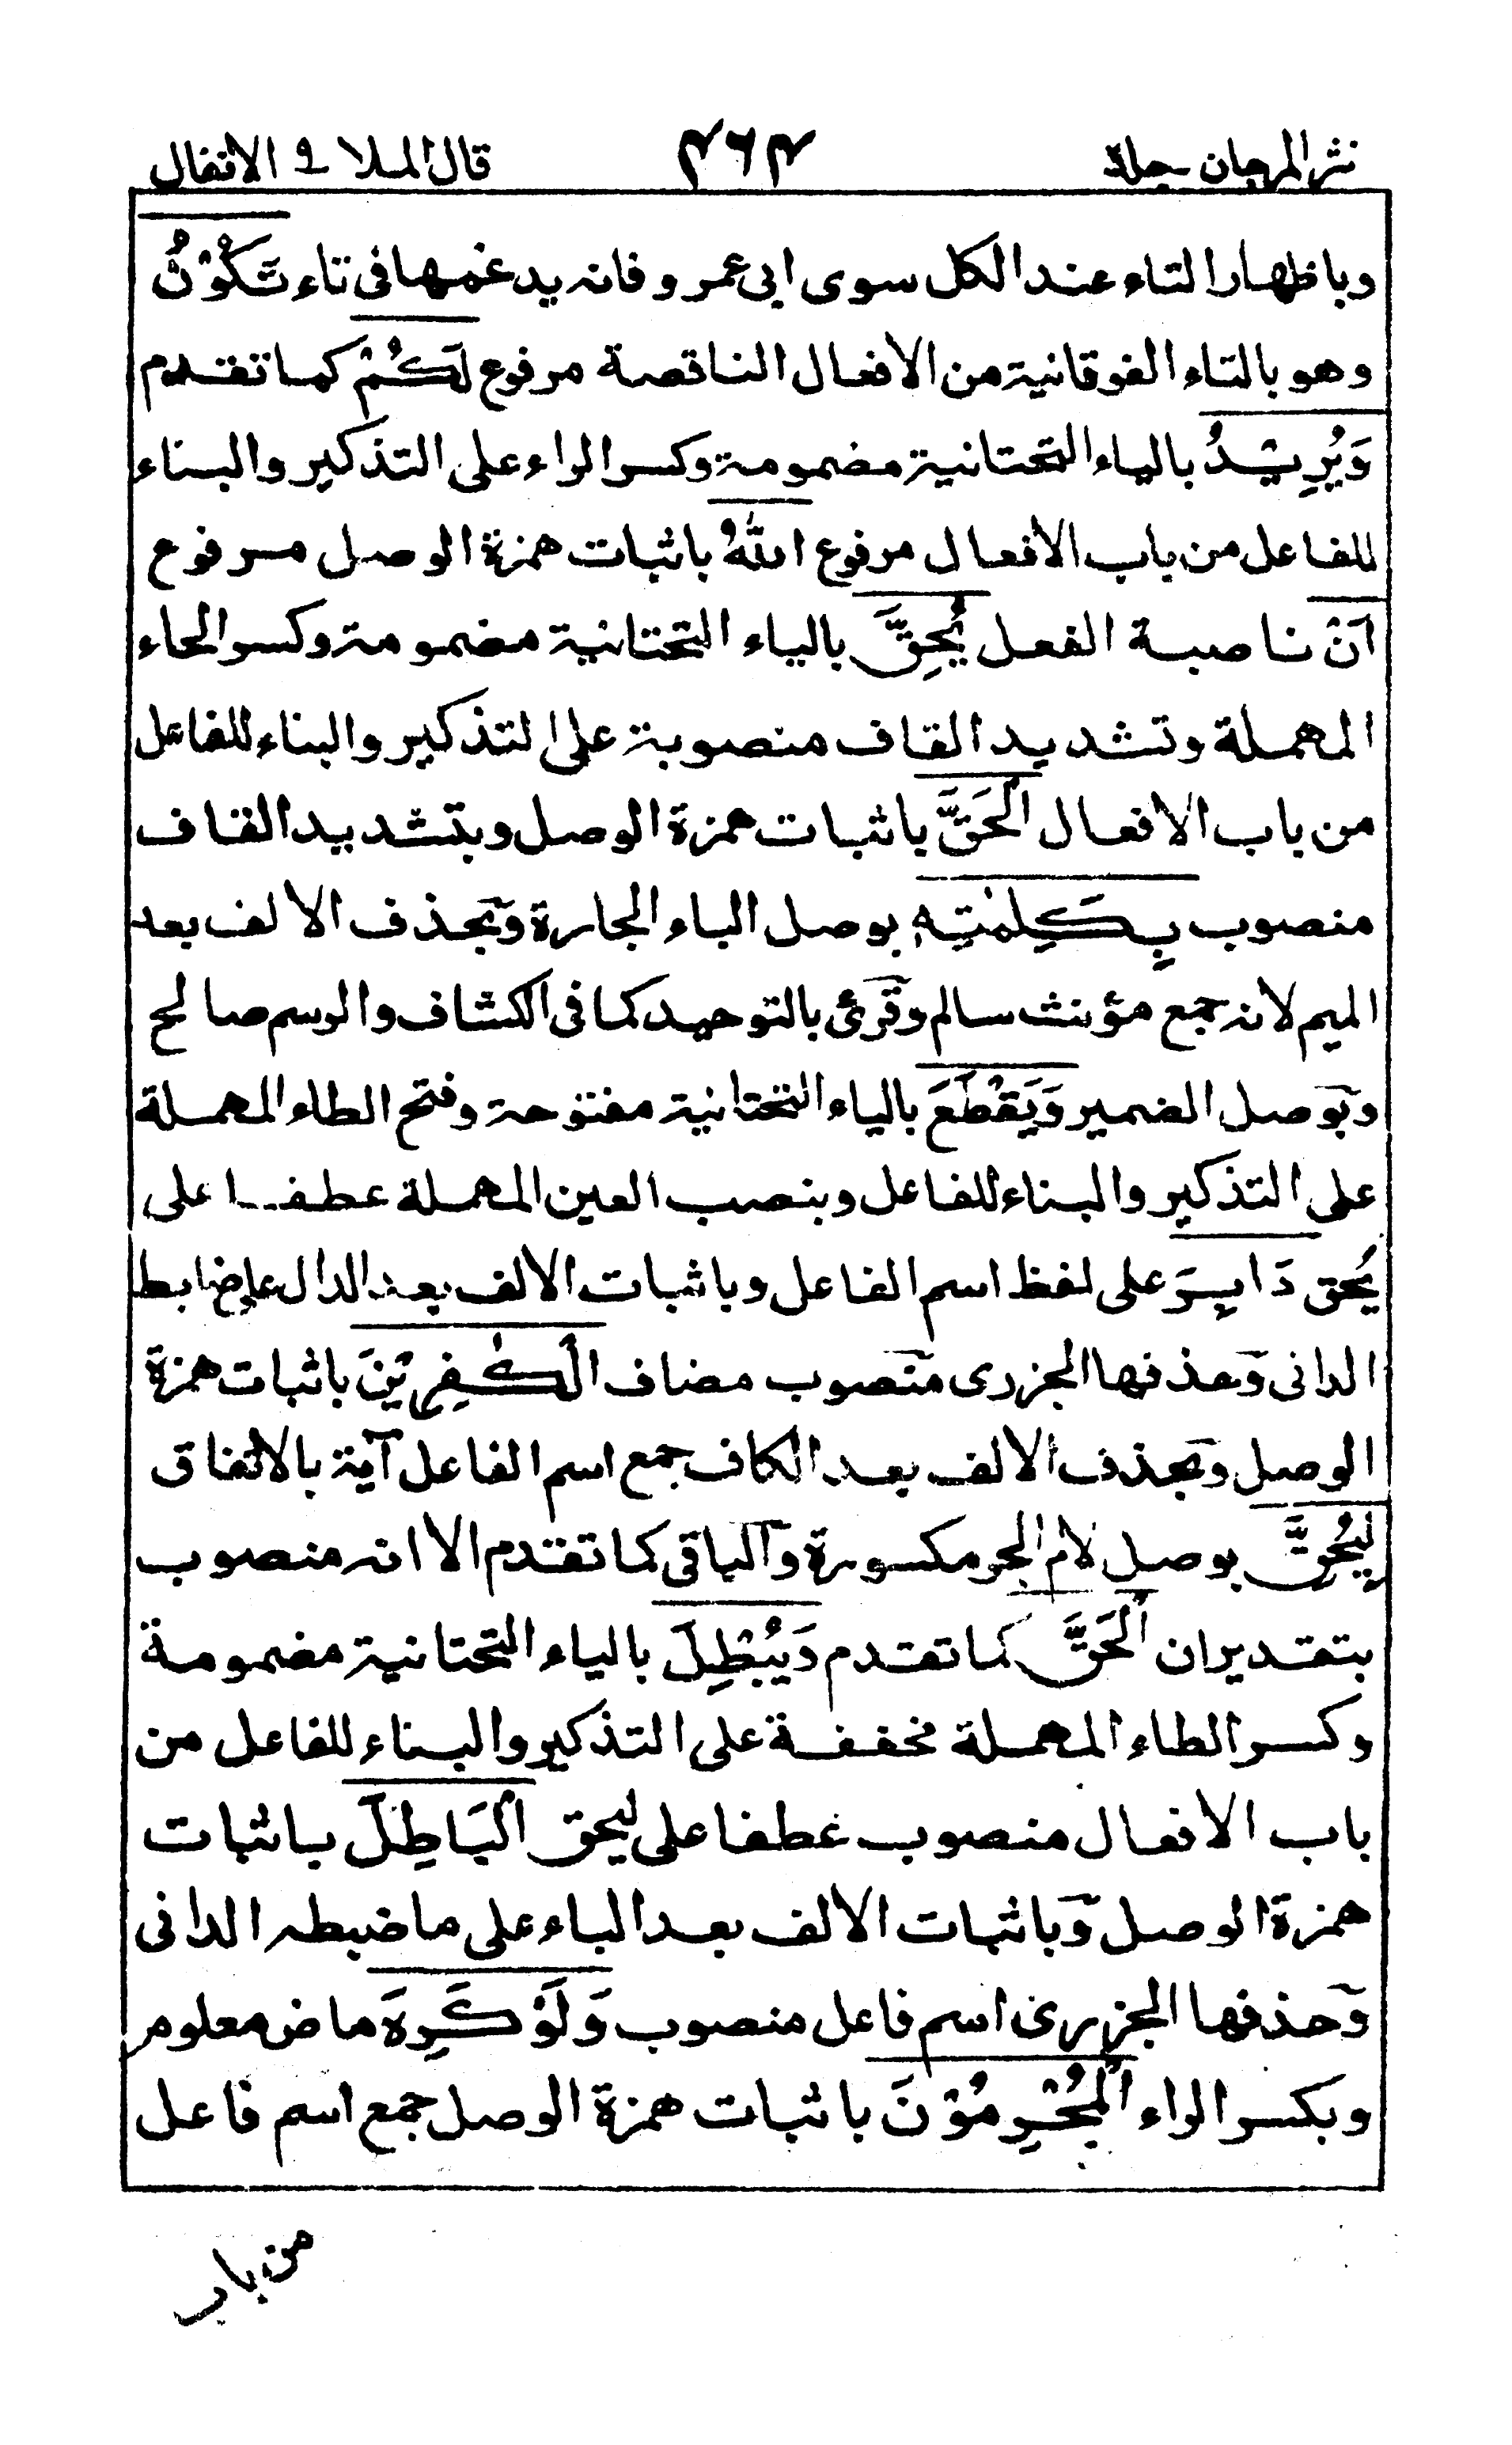 نثر المرجان جلد ۲ ۴۶۴ قال الملا ٩ الانفال
وباظهار التاء عند الكل سوى ابى عمرو فانه يدغمها فى تاء تَكُوْنُ
وهو بالتاء الفوقانية من الافعال الناقصة مرفوع لَكُمْ كما تقدم
وَيُرِيْدُ بالياء التحتانية مضمومة وكسر الراء على التذكير والبناء
للفاعل من باب الافعال مرفوع اللّٰهُ باثبات همزة الوصل مرفوع
اَنْ ناصبة الفعل يُحِقَّ بالياء التحتانية مضمومة وكسر الحاء
المهملة وتشديد القاف منصوبة على التذكير والبناء للفاعل
من باب الافعال الْحَقَّ باثبات همزة الوصل وبتشديد القاف
منصوب بِكَلِمٰتِهٖ بوصل الباء الجارة وبحذف الالف بعد
الميم لانه جمع مؤنث سالم وقرئ بالتوحيد كما فى الكشاف والرسم صالح
وبوصل الضمير وَيَقْطَعَ بالياء التحتانية مفتوحة وفتح الطاء المهملة
على التذكير والبناء للفاعل وبنصب العين المهملة عطفا على
يُحق دَابِرَ على لفظ اسم الفاعل وباثبات الالف بعد الدال على ضابط
الدانى وحذفها الجزرى منصوب مضاف الْكٰفِرِيْنَ باثبات همزة
الوصل وبحذف الالف بعد الكاف جمع اسم الفاعل آية بالاتفاق
لِيُحِقَّ بوصل لام الجر مكسورة والباقى كما تقدم الا انه منصوب
بتقدير ان الْحَقَّ كما تقدم وَيُبْطِلَ بالياء التحتانية مضمومة
وكسر الطاء المهملة مخففة على التذكير والبناء للفاعل من
باب الافعال منصوب عطفا على ليحق الْبَاطِلَ باثبات
همزة الوصل وباثبات الالف بعد الباء على ما ضبطه الدانى
وحذفها الجزرى اسم فاعل منصوب وَلَوْ كَرِهَ ماض معلوم
وبكسر الراء الْمُجْرِمُوْنَ باثبات همزة الوصل جمع اسم فاعل
من باب